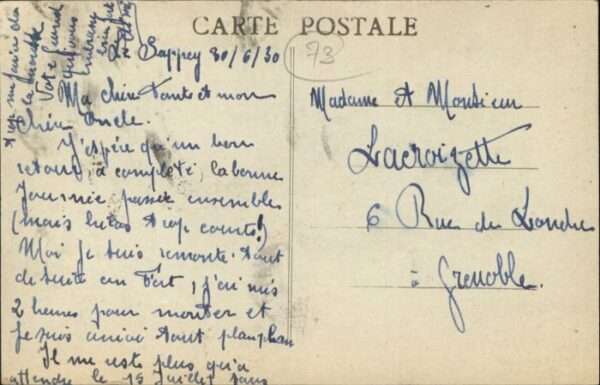 CARTE POSTALE
73
Le Sappey 30/6/30
Ma chère Tante et mon
cher Oncle.
J'espère qu'un bon
retour, a complété, la bonne
journée passée ensembles
(mais hélas trop courte!)
Moi je suis remonté tout
de suite au Fort, j'ai mis
2 heures pour monter et
je suis arrivé tout
Il me reste plus qu'à
attendre le 15 Juillet sans
votre grand
qui vous
embrasse
Madame et Monsieur
Lacroizette
6 Rue de Londres
à Grenoble.